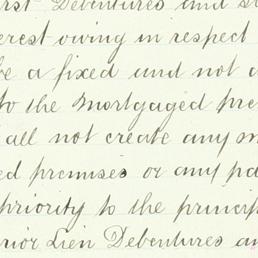 First Debentures and s
erest owing in respect
be a fixed and not a
to the Mortgaged pre
all not create any m
ed premises or any pa
priority to the princip
rior Lien Debentures an